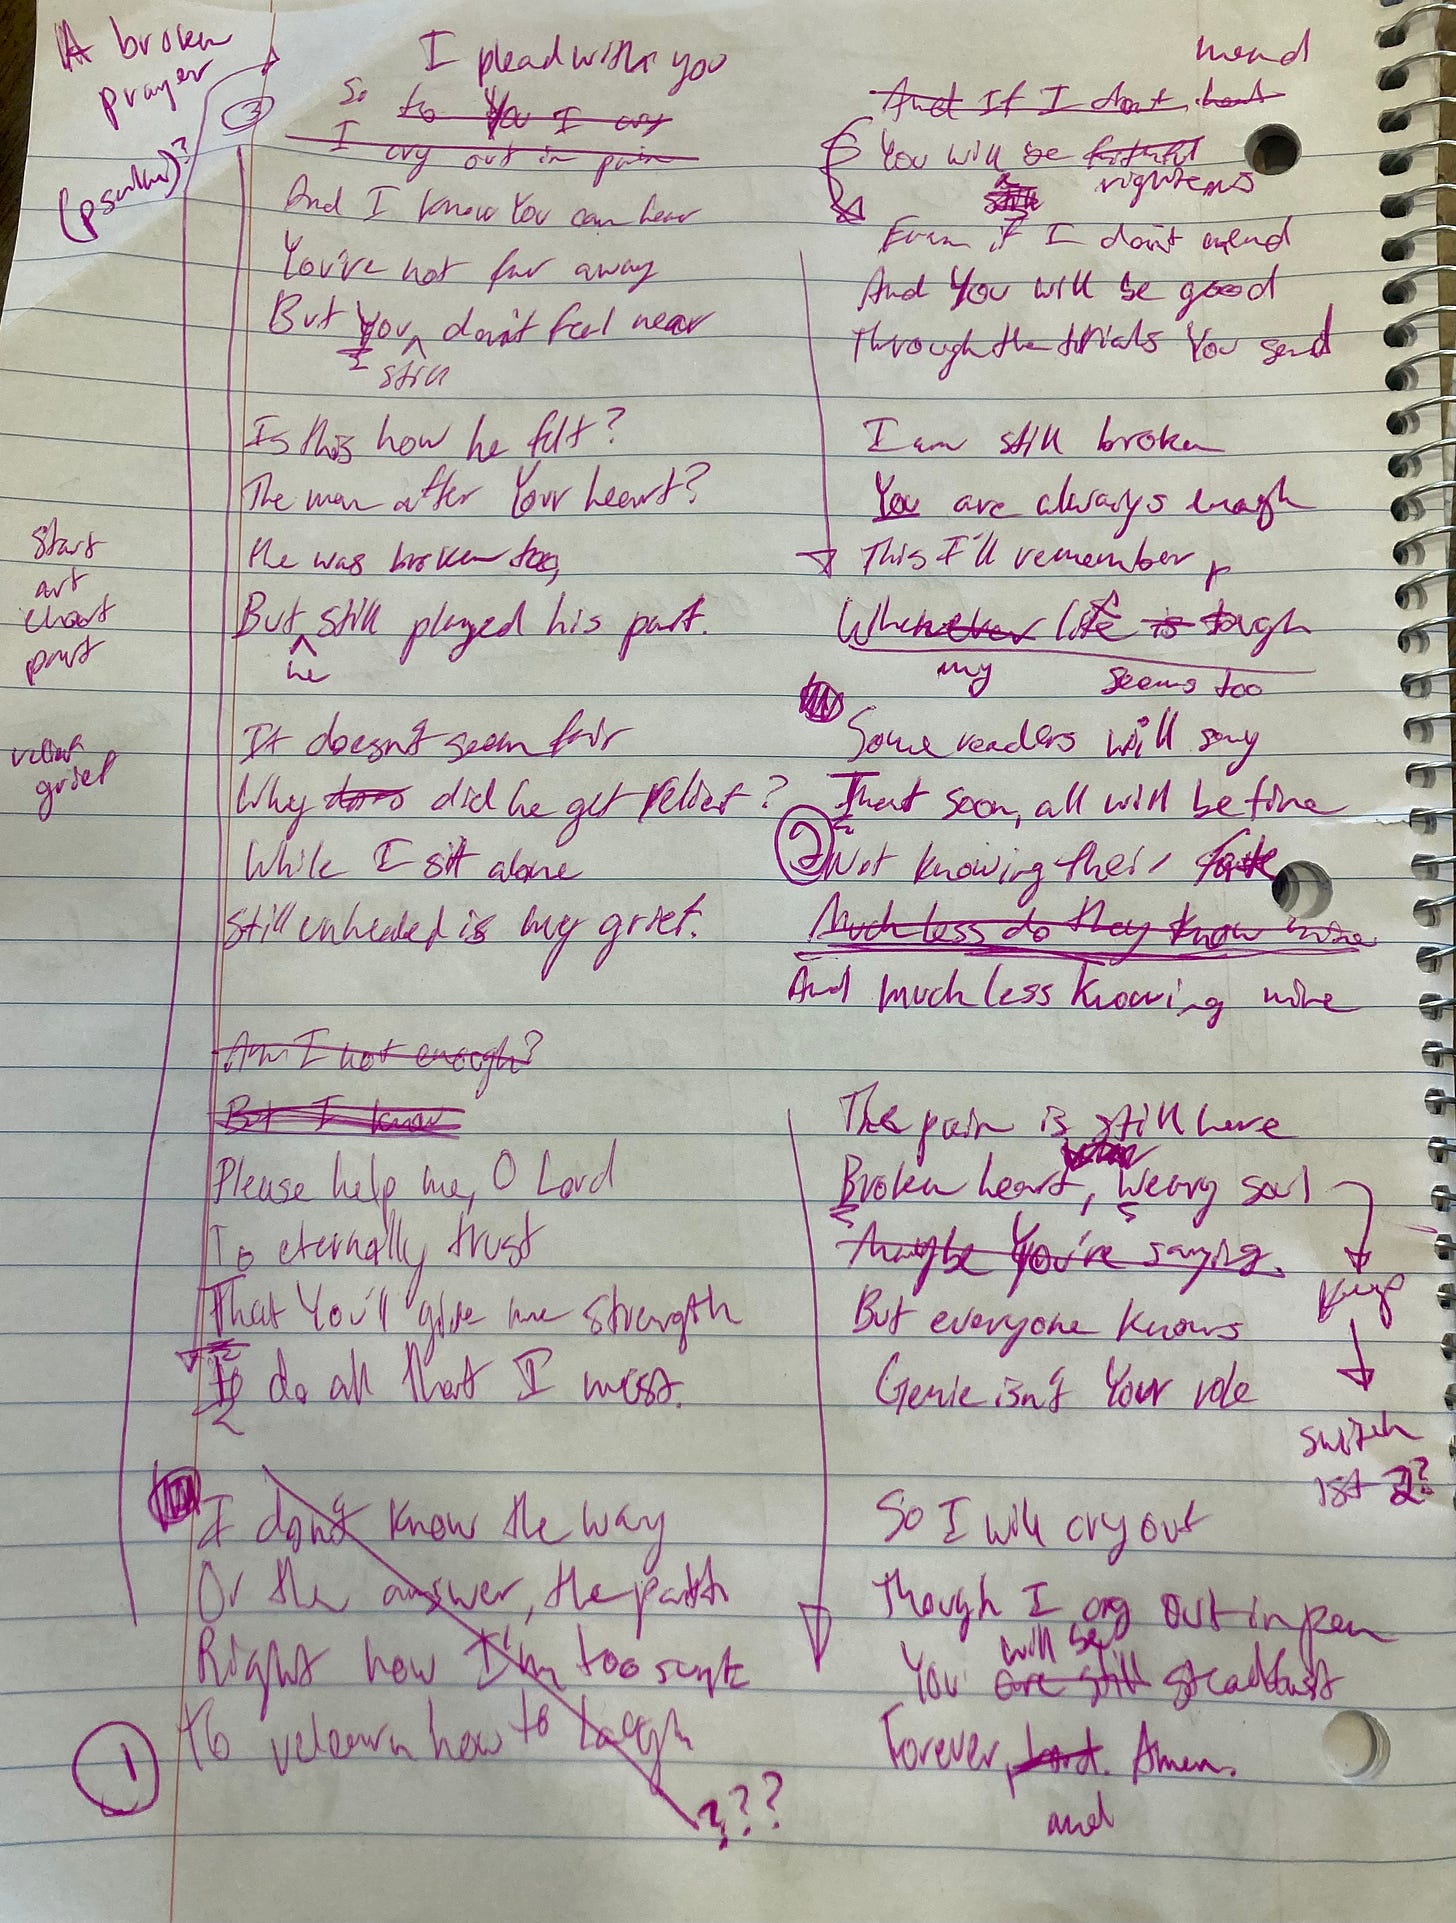 A broken
prayer
(psalm)?
3
I plead with you
So to You I cry
I cry out in pain
And I know You can hear
You're not far away
But You don't feel near
still
Is this how he felt?
The man after Your heart?
He was broken too,
But still played his part.
he
start
art
chart
part
It doesn't seem fair
Why does did he get relief?
While I sit alone
Still unhealed is my grief.
relief
grief
Am I not enough?
But I know
Please help me, O Lord
To eternally trust
That You'll give me strength
To do all that I must.
I don't know the way
Or the answer, the path
Right now I'm too
To relearn how to laugh
1
???
mend
And If I don't
You will be faithful
righteous
Even if I don't mend
And You will be good
Through the trials You send
I am still broken
You are always enough
This I'll remember,
Whenever life is tough
my seems too
Some readers will say
That soon, all will be fine
2
Not knowing their fate
Much less do they know mine
And much less knowing mine
The pain is still here
Broken heart, weary soul
Maybe You're saying
But everyone knows
Genie isn't Your role
keep
switch
1st 2?
So I will cry out
Though I cry out in pain
will be
You are still steadfast
Forever, Lord. Amen.
and